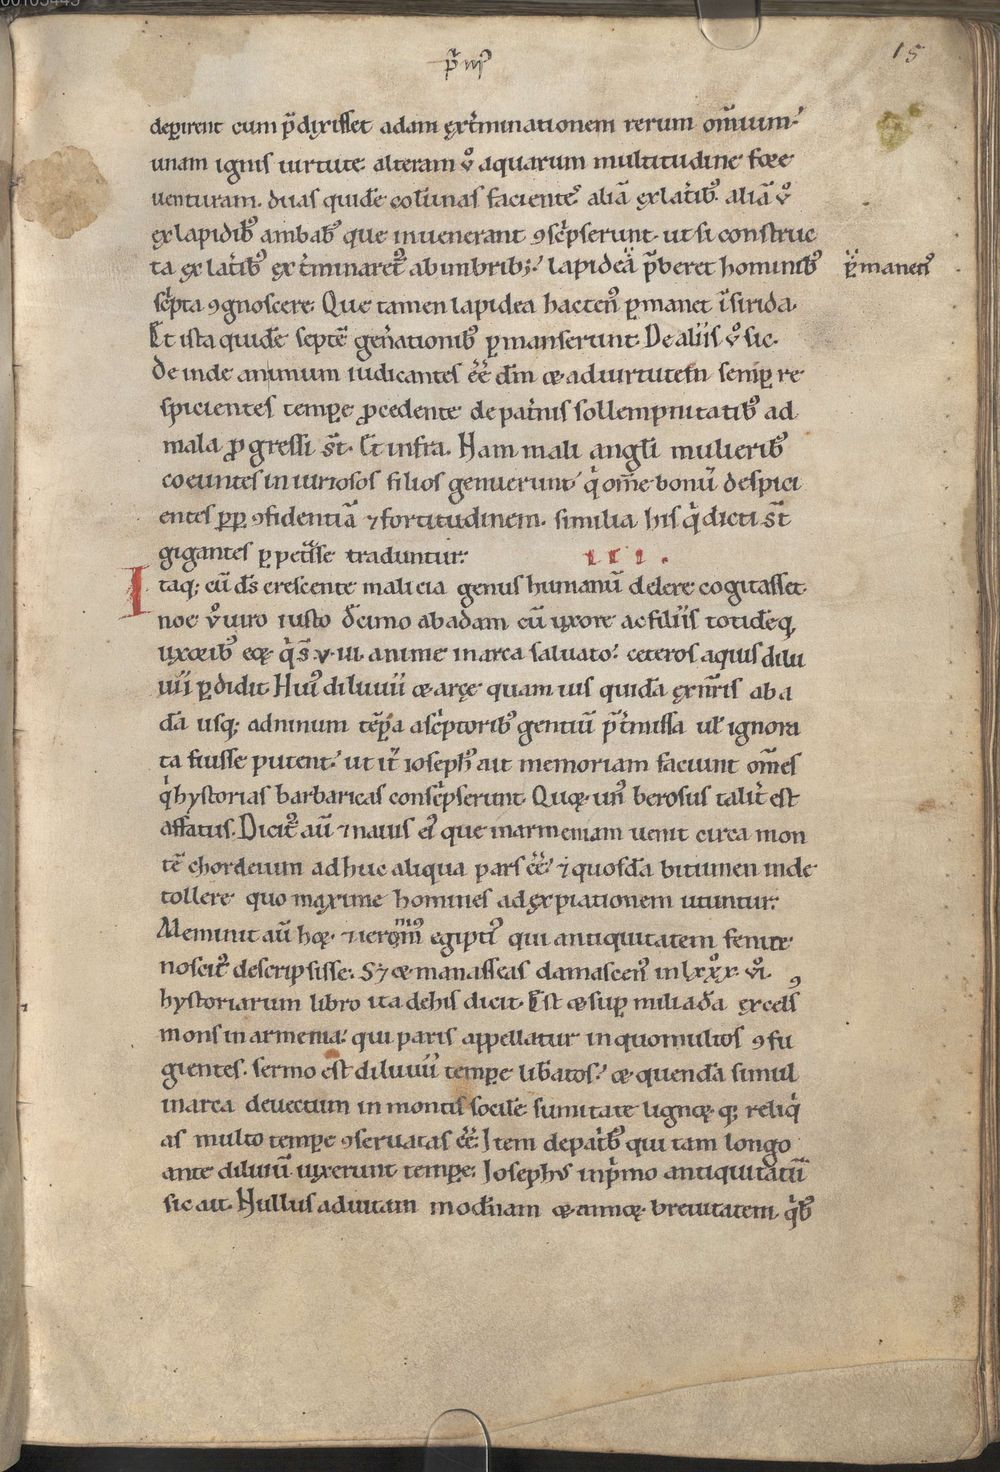 15
p̃mꝰ
deꝑirent cum p̃dixisset adam ext̃minationem rerum om̃ium·
unam ignis uirtute· alteram ṽ aquarum multitudine fore
uenturam. duas quidẽ colũnas facientẽ aliã ex lat̃ibꝰ. aliã ṽ
ex lapidibꝰ ambabꝰ que inuenerant ꝯsc̃pserunt· ut si construc
ta ex lat̃ibꝰ ext̃minaretꝰ ab imbribꝫ· lapidea p̃beret hominibꝰ
ꝑmanenꝰ
sc̃pta ꝯgnoscere. Que tamen lapidea hactenꝰ ꝑmanet ĩ sirida.
Et ista quidẽ septẽ geñationibꝰ ꝑmanserunt. De aliis ṽ sic.
De inde animum iudicantes ẽe dm̃ & ad uirtutem semꝑ re
spicientes tempore ꝓcedente de pat̃nis sollempnitatibꝰ ad
mala ꝓgressi st̃. Et infra. Nam mali angl̃i mulieribꝰ
coeuntes iniuriosos filios genuerunt q̃ om̃e bonũ despici
entes ꝓꝑ ꝯfidentiã ⁊ fortitudinem. similia his q̃ dicti st̃
gigantes ꝑpet̃sse traduntur.
III.
Itaqꝫ cũ ds̃ crescente malicia genus humanũ delere cogitasset·
noe ṽ uiro iusto dec̃imo ab adam cũ uxore ac filiis totideq̃
uxoribꝰ eoꝝ q̃s̃ v· iii· anime in arca saluato· ceteros aquis dilu
uii ꝑdidit. Huiꝰ diluuii & arce quam uis quidã exñris ab a
dã usqꝫ ad ninum tẽꝑa a sc̃ptoribꝰ gentiũ p̃t̃missa ul̃ ignora
ta fuisse putent· ut it̃ iosephꝰ ait memoriam faciunt om̃es
q̃ hystorias barbaricas consc̃pserunt. Quoꝝ unꝰ berosus talit̃ est
affatus. Dicitꝰ aũ ⁊ nauis eiꝰ que in armeniam uenit circa mon
tẽ chordeium ad huc aliqua pars ẽe· ⁊ quosdã bitumen inde
tollere quo maxime homines ad expiationem utuntur.
Meminit aũ hoꝝ· ⁊ ieronimꝰ egiptiꝰ qui antiquitatem fenice
noscitꝰ descripsisse. Sꝫ & manasseas damascenꝰ in lxxx· ṽi
hystoriarum libro ita de his dicit. Est & suꝑ miliadã excelsꝰ
mons in armenia· qui paris appellatur in quo multos ꝯfu
gientes· sermo est diluuii tempore lib̃atos· & quendã simul
in arca deuectum in montis socilẽ sumitate lignoꝝ· qꝫ reliq̃
as multo tempore ꝯseruatas ẽe. Item de pat̃bꝰ qui tam longo
ante diluuiũ uixerunt tempore. Iosephꝰ in p̃mo antiquitatũ
sic ait. Nullus ad uitam mod̃nam & annoꝝ breuitatem q̃bꝰ